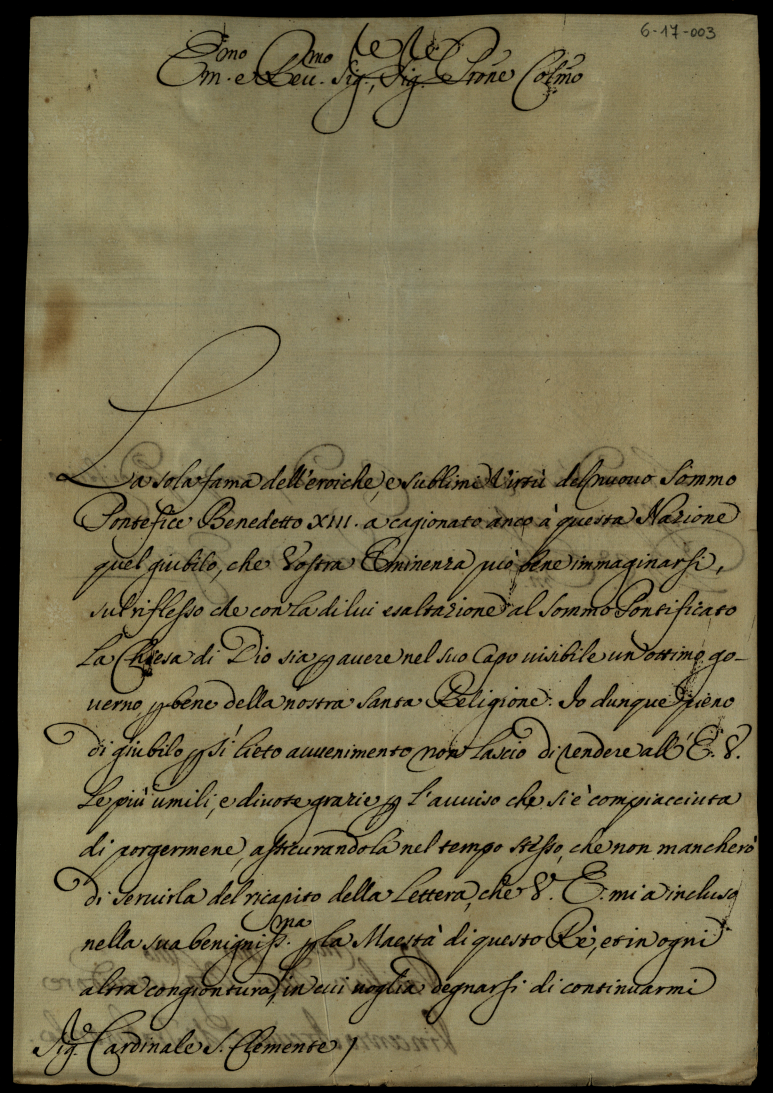 6-17-003
Em.mo e Reu.mo Sig.re, Sig.re Prone Colmo
La sola fama dell'eroiche, e sublimi Virtù del nuouo Sommo
Pontefice Benedetto XIII. a cagionato anco à questa Nazione
quel giubilo, che Vostra Eminenza può bene immaginarsi,
sul riflesso che con la di lui esaltazione al Sommo Pontificato
la Chiesa di Dio sia p auere nel suo Capo uisibile un ottimo go-
uerno p bene della nostra Santa Religione. Io dunque pieno
di giubilo p sì lieto auuenimento non lascio di rendere all'E. V.
le più umili, e diuote grazie p l'auuiso che si è compiacciuta
di porgermene, assicurandola nel tempo stesso, che non mancherò
di seruirla del ricapito della Lettera, che V. E. mi a inclusa
nella sua benigniss.ma p la Maestà di questo Rè, et in ogni
altra congiontura, in cui uoglia degnarsi di continuarmi
Sig.re Cardinale S. Clemente /